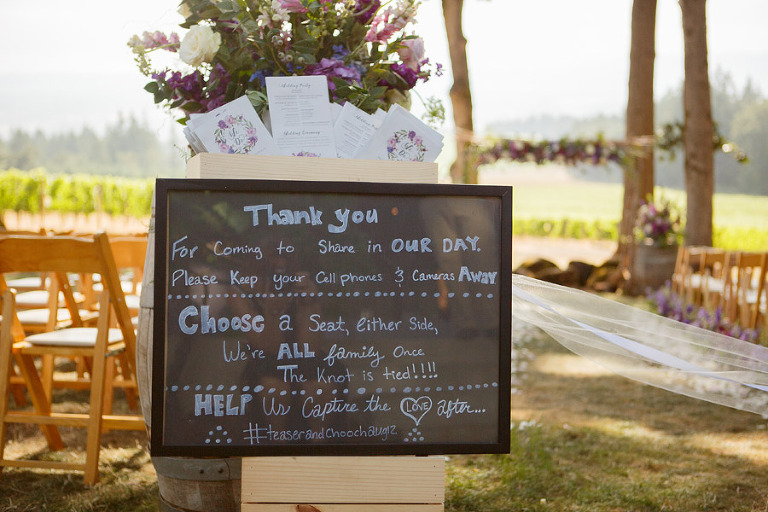 Wedding Party
Wedding Ceremony
Thank you
For Coming to Share in OUR DAY.
Please Keep your Cell phones & Cameras AWAY
Choose a Seat, either Side,
We're ALL family Once
The Knot is tied!!!!
HELP Us Capture the LOVE after...
#teaserandchoochaug12